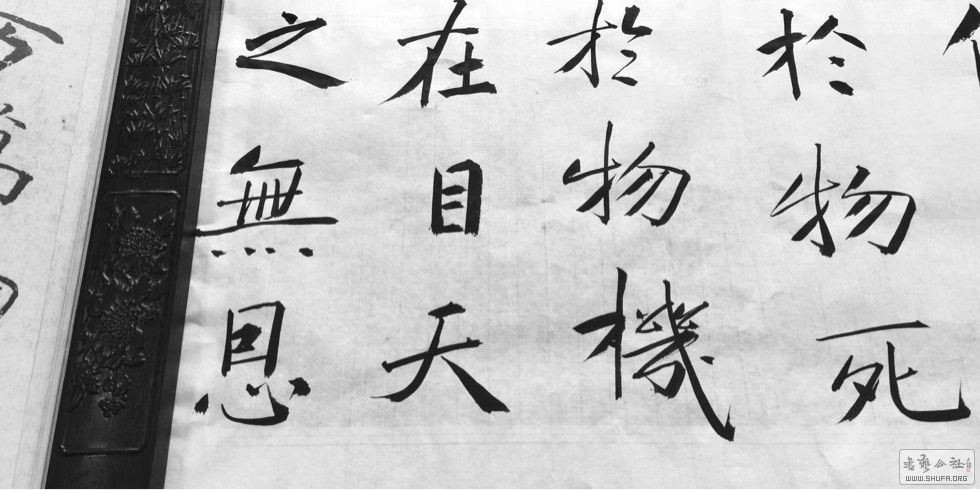 於物死
於物機
在目天
之無恩
书艺公社
WWW.SHUFA.ORG